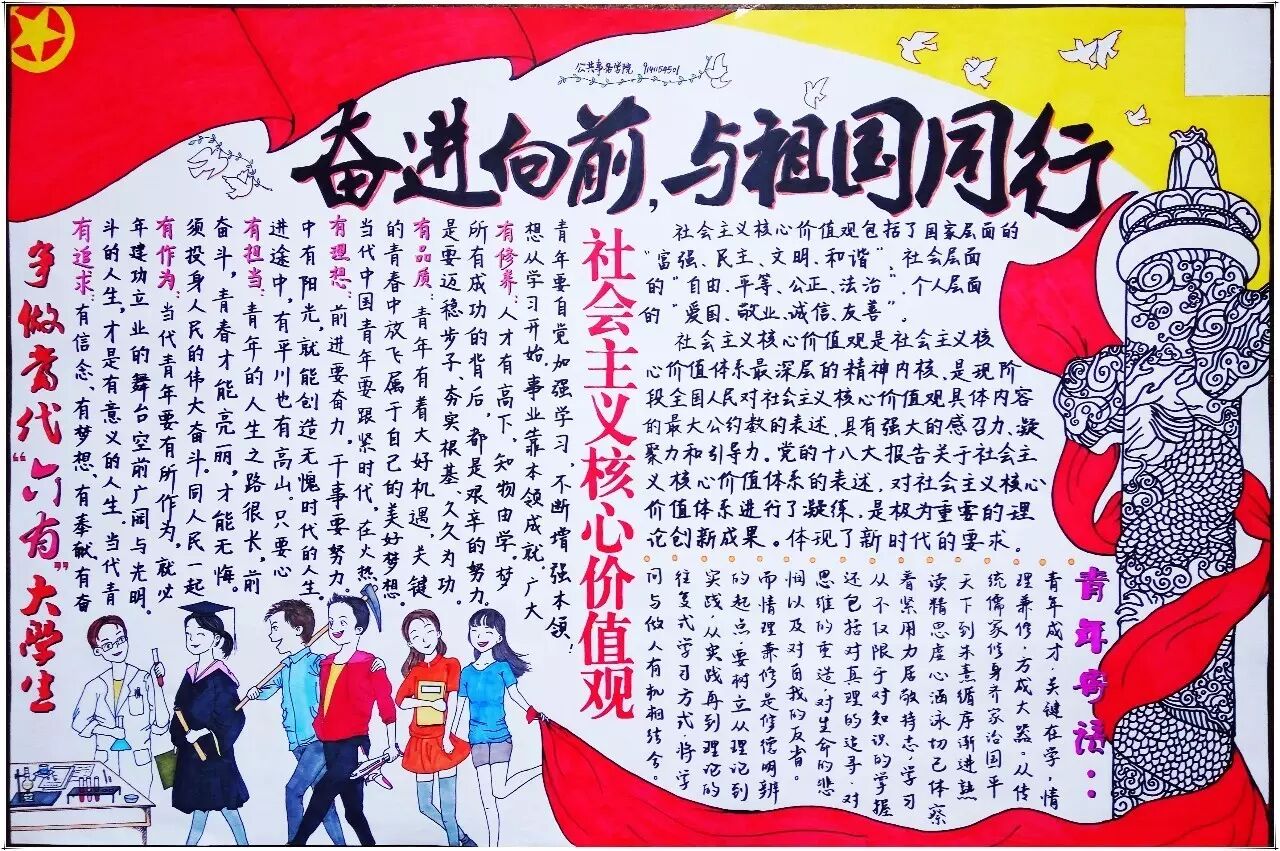 公共事务学院 9141154501
奋进向前,与祖国同行
争做当代“六有”大学生
有追求:有信念、有梦想、有奉献、有奋
斗的人生,才是有意义的人生。当代青
年建功立业的舞台空前广阔与光明。
有作为:当代青年要有所作为,就必
须投身人民的伟大奋斗。同人民一起
奋斗,青春才能亮丽,才能无悔。
有担当:青年的人生之路很长,前
进途中,有平川也有高山。只要心
中有阳光,就能创造无愧时代的人生
有理想:前进要奋力,干事要努力。
当代中国青年要跟紧时代,在火热
的青春中放飞属于自己的美好梦想。
有品质:青年有着大好机遇,关键
是要迈稳步子、夯实根基、久久为功。
所有成功的背后,都是艰辛的努力,
有修养:人才有高下,知物由学。梦
想从学习开始,事业靠本领成就,广大
青年要自觉加强学习,不断增强本领。
社会主义核心价值观
社会主义核心价值观包括了国家层面的
“富强、民主、文明、和谐”,社会层面
的“自由、平等、公正、法治”,个人层面
的“爱国、敬业、诚信、友善”。
社会主义核心价值观是社会主义核
心价值体系最深层的精神内核,是现阶
段全国人民对社会主义核心价值观具体内容
的最大公约数的表述,具有强大的感召力、凝
聚力和引导力。党的十八大报告关于社会主
义核心价值体系的表述,对社会主义核心
价值体系进行了凝练,是极为重要的理
论创新成果。体现了新时代的要求。
青年寄语:
青年成才,关键在学,情
理兼修,方成大器。从传
统儒家修身齐家治国平
天下到朱熹循序渐进熟
读精思虚心涵泳切己体察
着紧用力居敬持志,学习
从不仅限于对知识的学握
还包括对真理的追寻,对
思维的重造,对生命的悲
悯以及对自我的反省。
而情理兼修是修德明辨
的起点,要树立从理论到
实践,从实践再到理论的
往复式学习方式,将学
问与做人有机相结合。